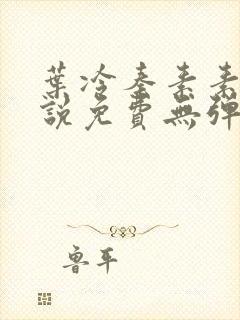 葉冷秦素素
說免費無彈
魯平